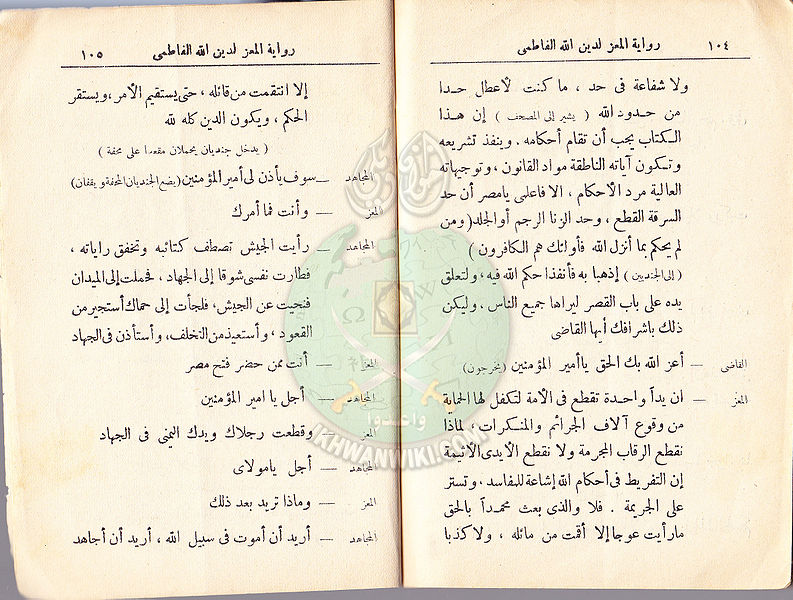 ١٠٤ رواية المعز لدين الله الفاطمى
ولا شفاعة فى حد ، ما كنت لأعطل حدا
من حدود الله ( يشير إلى المصحف ) إن هذا
الكتاب يجب أن تقام أحكامه . وينفذ تشريعه
وتكون آياته الناطقة مواد القانون ، وتوجيهاته
العالية مرد الأحكام ، الا فاعلمى يامصر أن حد
السرقة القطع ، وحد الزنا الرجم أو الجلد (ومن
لم يحكم بما أنزل الله فأولئك هم الكافرون )
(إلى الجنديين) إذهبا به فأنفذا حكم الله فيه ، ولتعلق
يده على باب القصر ليراها جميع الناس . وليكن
ذلك باشرافك أيها القاضى
القاضى — أعز الله بك الحق ياأمير المؤمنين (يخرجون)
المعز — ان يدأ واحدة تقطع فى الأمة لتكفل لها الحماية
من وقوع آلاف الجرائم والمنكرات ، لماذا
نقطع الرقاب المجرمة ولا نقطع الأيدى الأثيمة
إن التفريط فى أحكام الله إشاعة للمفاسد ، وتستر
على الجريمة . فلا والذى بعث محمدأ بالحق
مارأيت عوجا إلا أقمت من مائله ، ولا كذبا
رواية المعز لدين الله الفاطمى ١٠٥
إلا انتقمت من قائله ، حتى يستقيم الأمر ، ويستقر
الحكم ، ويكون الدين كله لله
( يدخل جنديان يحملان مقعدا على محفة )
المجاهد — سوف يأذن لى أمير المؤمنين (يضع الجنديان المحفة ويقفان)
المعز — وأنت فما أمرك
المجاهد — رأيت الجيش تصطف كتائبه وتخفق راياته ،
فطارت نفسى شوقا إلى الجهاد ، فحملت إلى الميدان
فنحيت عن الجيش ، فلجأت إلى حماك أستجير من
القعود ، وأستعيذ من التخلف ، وأستأذن فى الجهاد
المعز — أنت ممن حضر فتح مصر
المجاهد — أجل يا امير المؤمنين
المعز — وقطعت رجلاك ويدك اليمنى فى الجهاد
المجاهد — أجل يامولاى
المعز — وماذا تريد بعد ذلك
المجاهد — أريد أن أموت فى سبيل الله ، أريد أن أجاهد
وأعدوا
IKHWANWIKI.COM